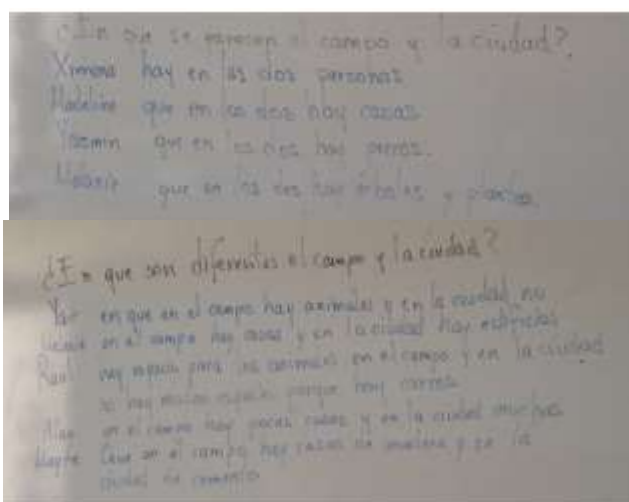 ¿En que se parecen el campo y la ciudad?
Ximena hay en las dos personas
Madeline que en las dos hay casas
Yazmin que en las dos hay perros.
que en las dos hay árboles y plantas
¿En que son diferentes el campo y la ciudad?
en que en el campo hay animales y en la ciudad no
en el campo hay casas y en la ciudad hay edificios
Raul hay espacio para los animales en el campo y en la ciudad
no hay mucho espacio porque hay carros
en el campo hay pocas casas y en la ciudad muchas
Mayra Que en el campo hay casas de madera y en la
ciudad de cemento